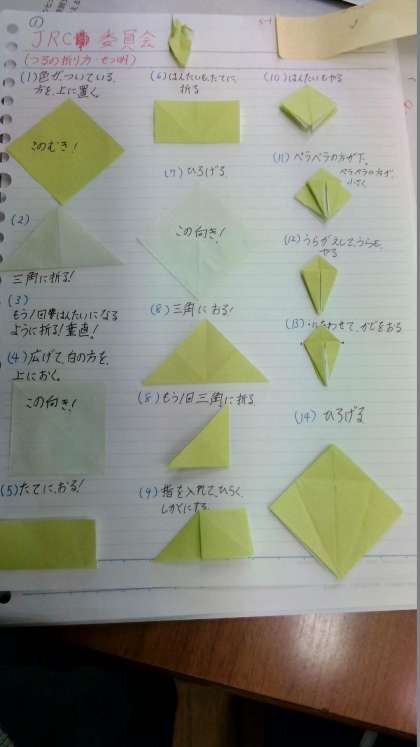 ①
JRC 委員会
(つるの折り方 せつ明)
5-1
(1)色がついている、
方を、上に置く。
このむき!
(2)
三角に折る!
(3)
もう1回半はんたいになる
ように折る!垂直!
(4)広げて、白の方を、
上におく。
この向き!
(5)たてに、おる!
(6)はんたいも、たてに、
折る
(7)ひろげる
この向き!
(8)三角におる!
(8)もう1回三角に折る。
(9)指を入れて、ひらく、
しかくにする。
(10)はんたいもやる
(11)ペラペラの方が下。
ペラペラの方が、
小さく
(12)うらがえして、うらも、
やる
(13)にあわせて、かどをおる
(14)ひろげる